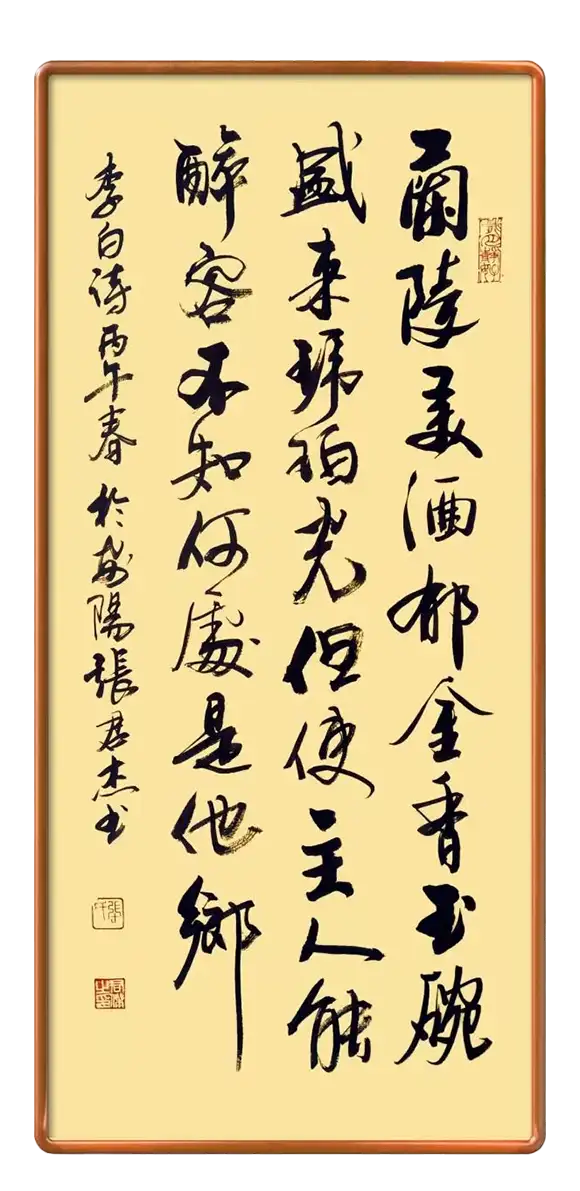 蘭陵美酒郁金香玉碗
盛来琥珀光但使主人能
醉客不知何處是他鄉
李白诗丙午春於南陽張君杰书